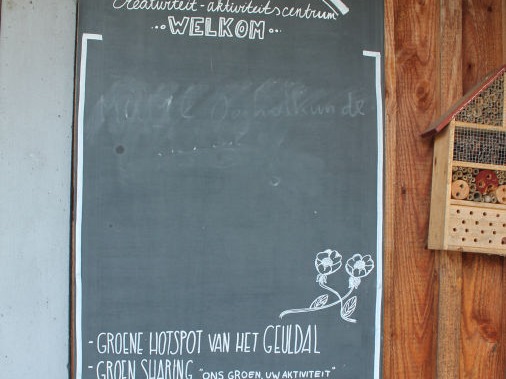 Creativiteit - aktiviteitscentrum
..WELKOM..
- GROENE HOTSPOT VAN HET GEULDAL
- GROEN SHARING "ONS GROEN, UW AKTIVITEIT"